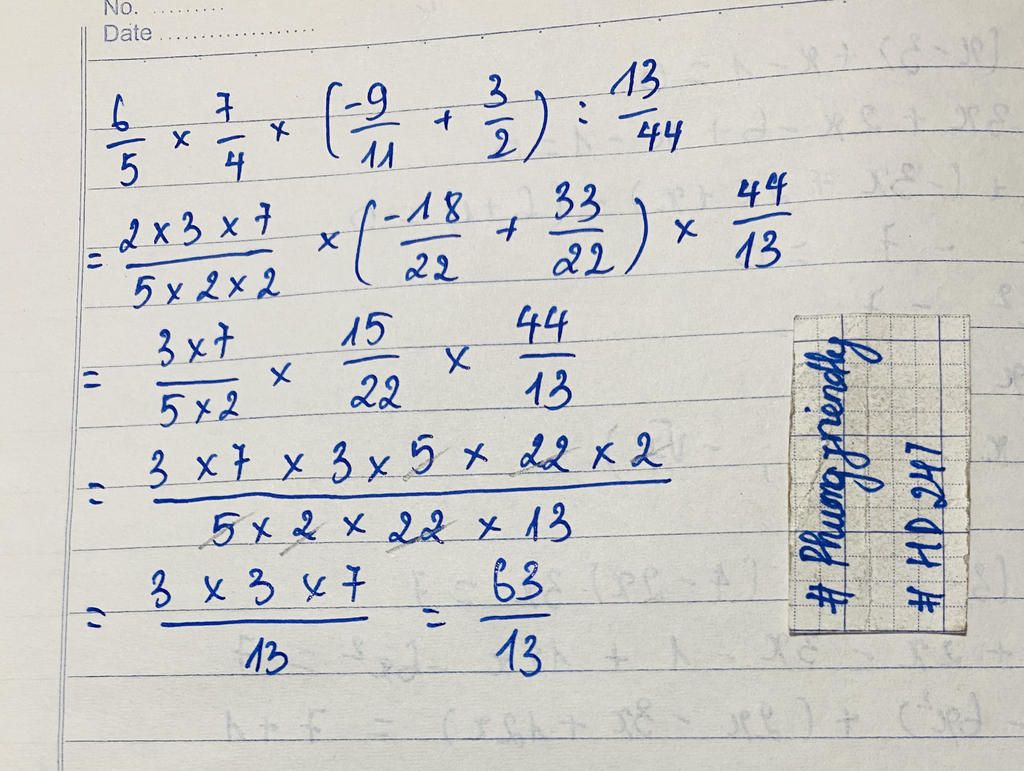 No. .........
Date ...................
6/5 × 7/4 × (-9/11 + 3/2) : 13/44
= 2 × 3 × 7 / 5 × 2 × 2 × (-18/22 + 33/22) × 44/13
= 3 × 7 / 5 × 2 × 15/22 × 44/13
= 3 × 7 × 3 × 5 × 22 × 2 / 5 × 2 × 22 × 13
= 3 × 3 × 7 / 13 = 63/13
# Phuongfriendly
# HD 247